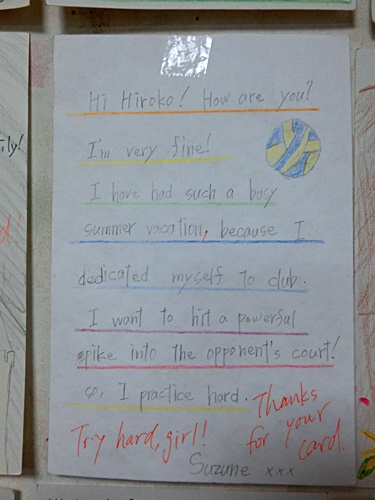 Hi Hiroko! How are you?
I'm very fine!
I have had such a busy
summer vacation, because I
dedicated myself to club.
I want to hit a powerful
spike into the opponent's court!
so, I practice hard.
Thanks
for your
card.
Try hard, girl!
Suzune xxx